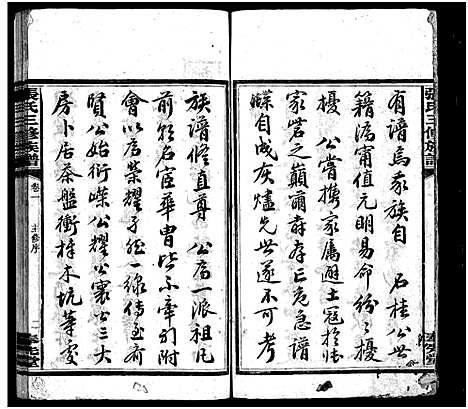 張氏三修族譜
有譜焉我族自 石桂公世
籍瀏甯值元明易命紛〻擾
擾 公嘗攜家屬避土寇於
家岩之巔爾時存亡危急譜
牒自成灰燼先世遂不可考
族譜修直尊 公為一派祖凡
前代名宦華胄皆不牽引附
會以為榮耀子姪一線傳至有
賢公始衍嶸公耀公襄公三大
房卜居茶盤衝梓木坑等處
張氏三修族譜
卷一
主修序
一
孝先堂